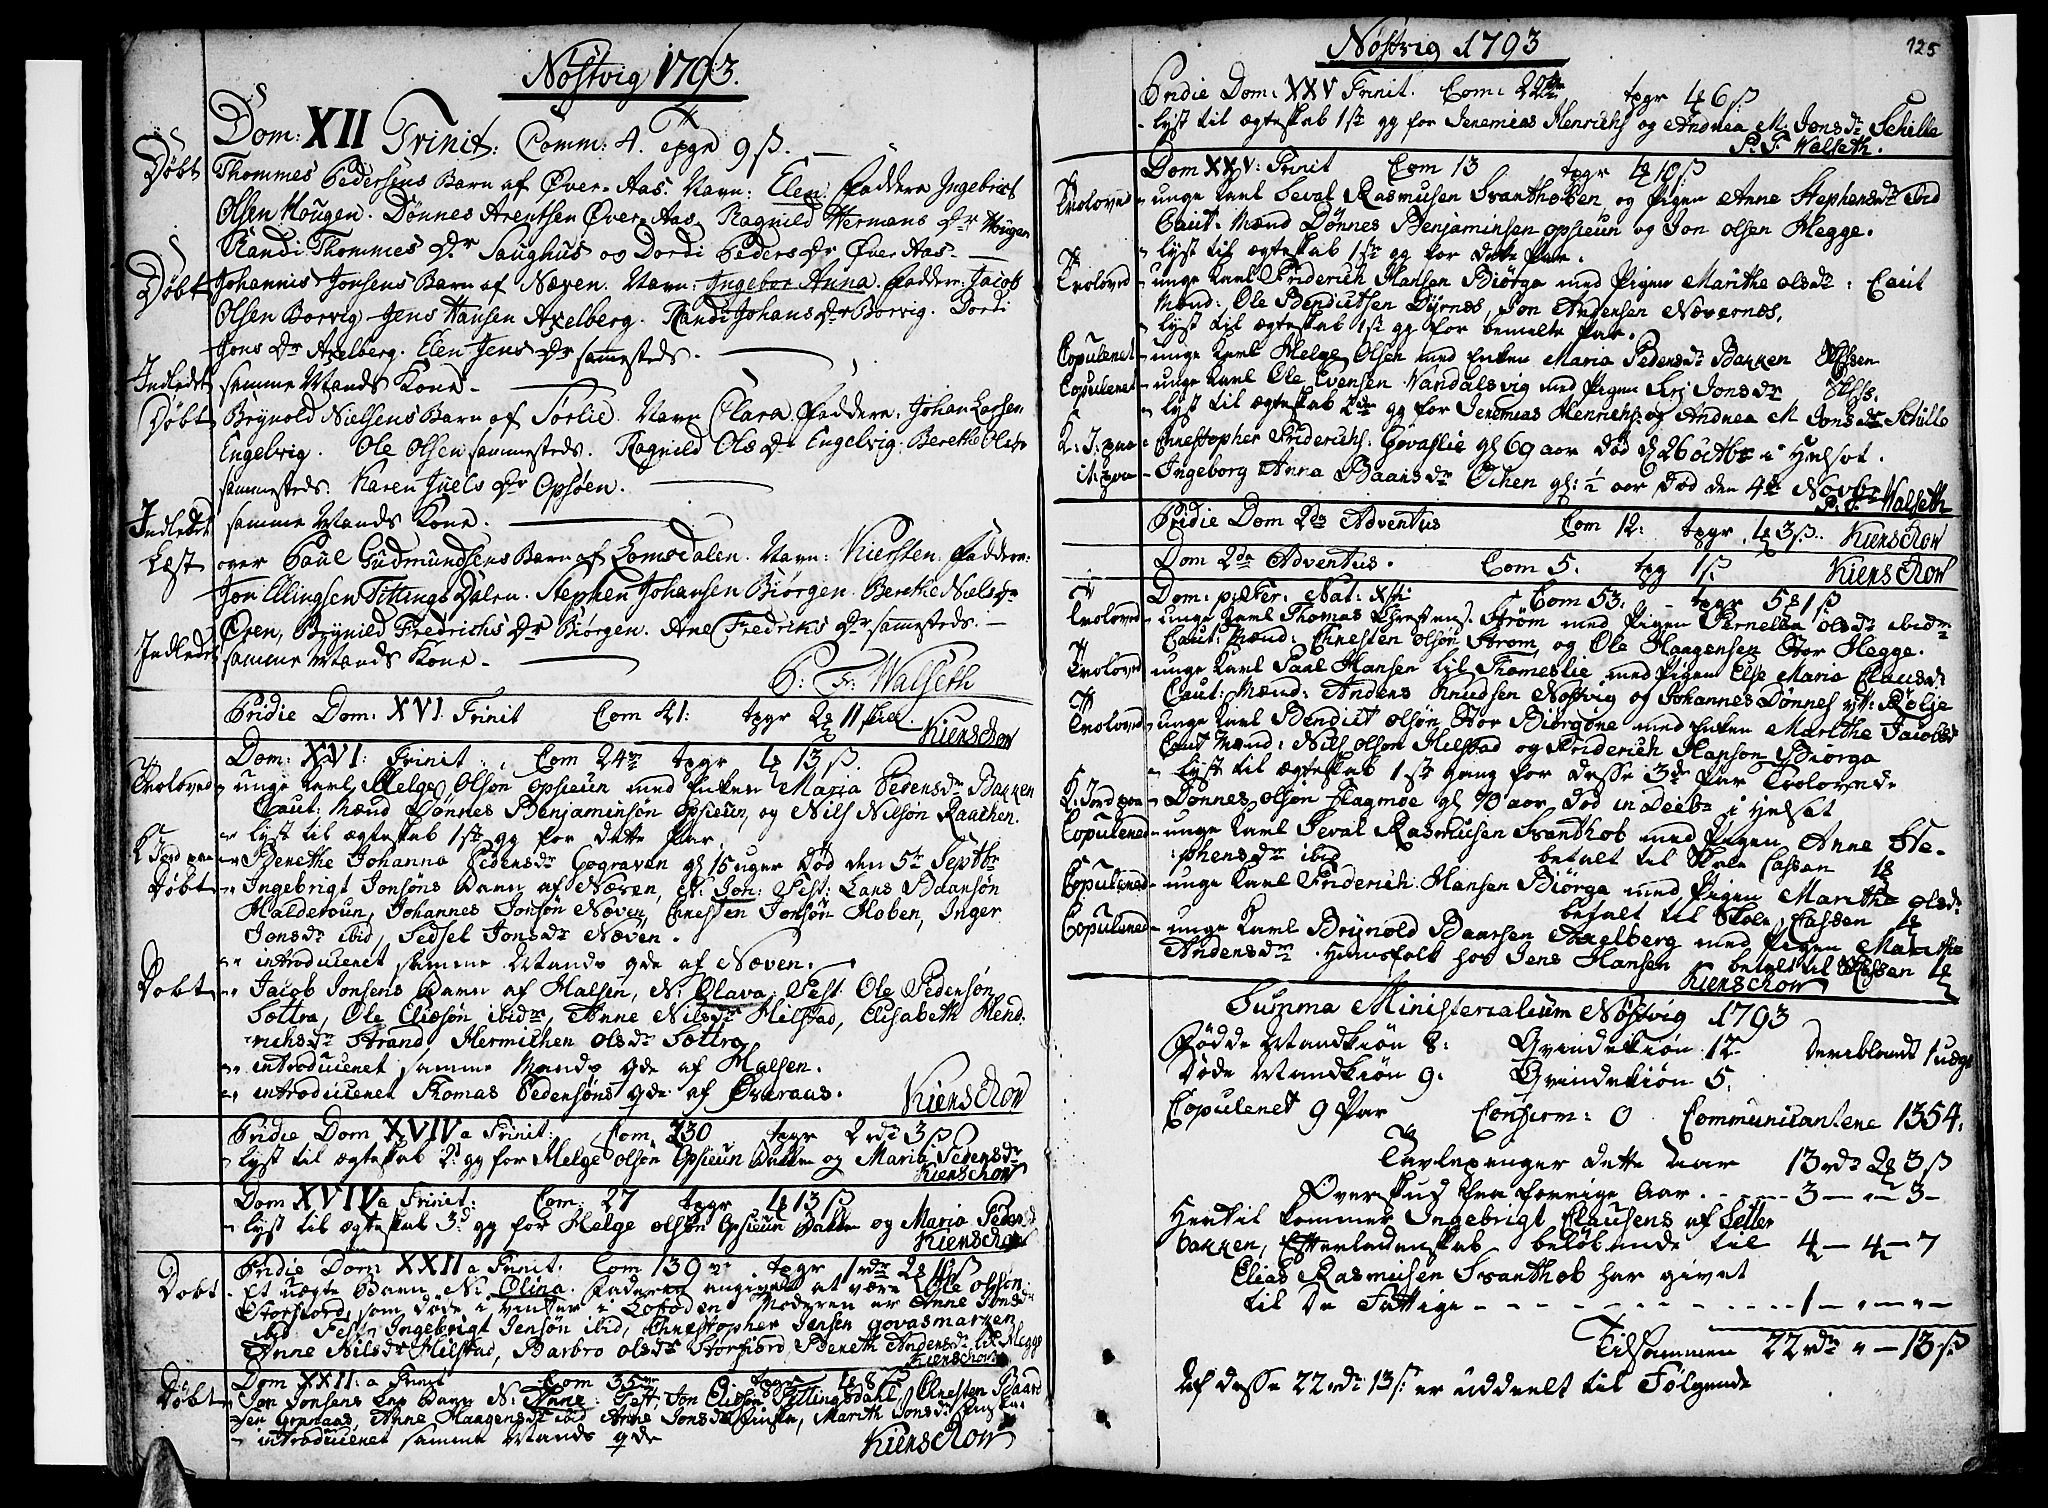 Nøstvig 1793.
Dom: XII Trinit: Comm: 4. tpgr 9 ß.
Døbt Thommes Pedersens Barn af Øver-Aas. Navn: Elen. Faddere Ingebrigt
Olsen Hougen. Dønnes Arentsen Øver-Aas. Ragnild Hermans Dr Hougen
Randi Thommes Dr Saughus og Dordi Peders Dr Øver Aas.
Døbt Johannis Jonsens Barn af Næven. Navn: Ingebor Anna. Faddere: Jacob
Olsen Borvig Jens Hansen Axelberg. Randi Johans Dr Borvig. Dordi
Jons Dr Axelberg. Elen Jens Dr sammesteds.
Indledet samme Mands Kone.
Døbt Brynold Nielsens Barn af Tørlie. Navn Clara. Faddere: Johan Larsen
Engelvig. Ole Olsen sammesteds. Ragnild Ols Dr Engelvig. Berethe Ols Dr
sammesteds. Karen Juels Dr Opsøen.
Indledet samme Mands Kone.
Læst over Paul Gudmundsens Barn af Lomsdalen. Navn: Kiersten. Faddere:
Jon Ellingsen Tittings Dalen. Stephen Johansen Biørgen. Berethe Niels Dr
Øren, Brynild Fredrichs Dr Biørgen. Ane Fredriks Dr sammesteds.
Indledet samme Mands Kone.
P: F: Walseth
Pridie Dom: XVI Trinit Com 41: tpgr 2 11 skil. Kierschow
Dom: XVI: Trinit: Com 24 tpgr 13 ß.
Troloved unge Karl Helge Olsøn Opsieun med Enken Maria Pedersdr Bakken
Caut: Mænd Dønnes Benjaminsøn Opsieun, og Nils Nilsøn Raachen.
lyst til ægteskab 1ste gg for dette Par.
Berethe Johanna Pedersdr Gograven gl 15 uger Død den 5te Septbr
Døbt Ingebrigt Jonsøns Barn af Næven, N: Jon: Test: Lars Baarsøn
Halderoun, Johannes Jonsøn Næven, Christen Jonsøn Hoben, Inger
Jonsdr ibid, Sedsel Jonsdr Næven.
introduceret samme Mands qde af Næven.
Døbt Jacob Jonsens Barn af Halsen, N: Olava: Test Ole Pedersøn
Sottra, Ole Eliesøn ibidm, Anne Nilsdr Hilstad, Elisabeth Hend-
richsdr Strand, Hermichen Olsdr Sottra
introduceret samme Mands qde af Halsen.
introduceret Thomas Pedersøns qde af Øveraas. Kierschow
Pridie Dom XVIIa Trinit: Com 230 tpgr 2 rdr 3 ß
lyst til ægteskab 2d gg for Helge Olsøn Opsieun Bakken og Maria Pedersdr
Kierschow
Dom XVIIa Trinit: Com: 27 tpgr 13 ß
lyst til ægteskab 3d gg for Helge Olsøn Opsieun Bakken og Maria Pedersd
Kierschow
Pridie Dom XXIIa Trinit. Com 139 tpgr 1 rdr
Døbt Et uægte Barn N: Olina. Faderen angivet at være Ole Olsøn
Storfiord, som døde i vinter i Lofoden Moderen er Anne Jonsdr
ibid Test: Ingebrigt Jensøn ibid, Christopher Jensen Govasmarken
Anne Nilsdr Hilstad, Barbro Olsdr Storfiord Bereth Andersdr lil Hegge
Kierschow
Dom XXII: a Trinit Com 35 tpgr 8 ß
Døbt Jon Jonsens Barn N: Anne: Test, Jon Eliesøn Tittingsdahl, Christen Baard
sen Grønaas, Anne Haagensdr ibid Anne Jonsdr, Marith Jonsdr
introduceret samme Mands qde Kierschow
Nøstvig 1793
125
Pridie Dom: XXV Trinit. Com: 22 tpgr 6 ß:
lyst til ægteskab 1ste gg for Jeremias Henrichs og Andrea M. Jonsdr Schille
P: F Walseth.
Dom XXV: Trinit Com 13 tpgr 10 ß
Trolovet unge Karl Seval Rasmusen Svanthoben og Pigen Anne Stephensdr ibid
Caut: Mænd Dønnes Benjaminsen Opsieun og Jon Olsen Hegge.
lyst til ægteskab 1ste gg for dette Par.
Trolovet unge Karl Friderich Hansen Biörga med Pigen Marithe Olsdr: Caut
Mænd: Ole Bendictsen Dyrnes, Jon Andersen Nævernes.
lyst til ægteskab 1ste gg for bemelte Par.
Copuleret unge Karl Helge Olsen med Enken Maria Pedersdr Bakken
Copuleret unge Karl Ole Evensen Vandalsvig med Pigen Jonsdr
lyst til ægteskab 2den gg for Jeremias Henrichs: og Andrea M Jonsdr Schille
Christopher Friderichs: Govaslie gl 69 aar død d 26 octbr i Helset.
Ingeborg Anna Baarsdr Ochen gl: ½ aar Død den 4de Novbr P: F: Walseth
Pridie Dom 2da Adventus Com 12: tpgr 3 ß. Kierschow
Dom 2da Adventus. Com 5. tpg 1 ß: Kierschow
Dom: p: Fer. Nat: Xsti Com 53. tpgr 5 1 ß
Trolovet unge Karl Thomas Christens: Strøm med Pigen Pernella Olsdr ibidm
Caut: Mænd: Christen Olsøn Strøm, og Ole Haagensen Stor Hegge.
Trolovet unge Karl Paal Hansen lil Thomeslie med Pigen Else Maria Clausdr
Caut: Mænd: Anders Knudsen Nøstvig og Johannes Dønnes
Trolovet unge Karl Bendict Olsøn Stor Biorgøne med Enken Marithe Jacobsdr
Caut Mænd: Nils Olsøn Hilstad og Friderich Hansøn Biörga
lyst til ægteskab 1ste gang for disse 3de Par Trolovede
K: Jord paa Dønnes Olsøn Flagmoe gl 70 aar, død in Decbr i Helset
Copulered unge Karl Seval Rasmusen Svanthob med Pigen Anne Ste-
phensdr ibid betalt til Skole Cassen 1
Copulered unge Karl Friderich Hansen Biörga med Pigen Marithe Olsdr
betalt til Skole Cassen 1
Copulered unge Karl Brynold Baarsen Axelberg med Pigen Marithe
Andersdr. Huusfolk hos Jens Hansen betalt til Cassen 1
Kierschow
Summa Ministerialium Nøstvig 1793
Fødde Mandkiön 8: Qvindekiön 12 deriblandt 1 uægt
Døde Mandkiön 9. Qvindekiön 5.
Copuleret 9 Par Confirm: 0 Communicantere 1354.
Tavlepenger dette Aar 13 rdr 2 3 ß
Overskud fra forrige Aar. 3 — " — 3 —
Hertil kommer Ingebrigt Clausens af Setter
bakken, Efterladenskab beløbende til 4 — 4 — 7
Elias Rasmusen Svanthob har givet
til De Fattige 1 — " — " —
Tilsammen 22 rdr " — 13 ß
Af disse 22 rdr 13 ß er uddeelt til Følgende